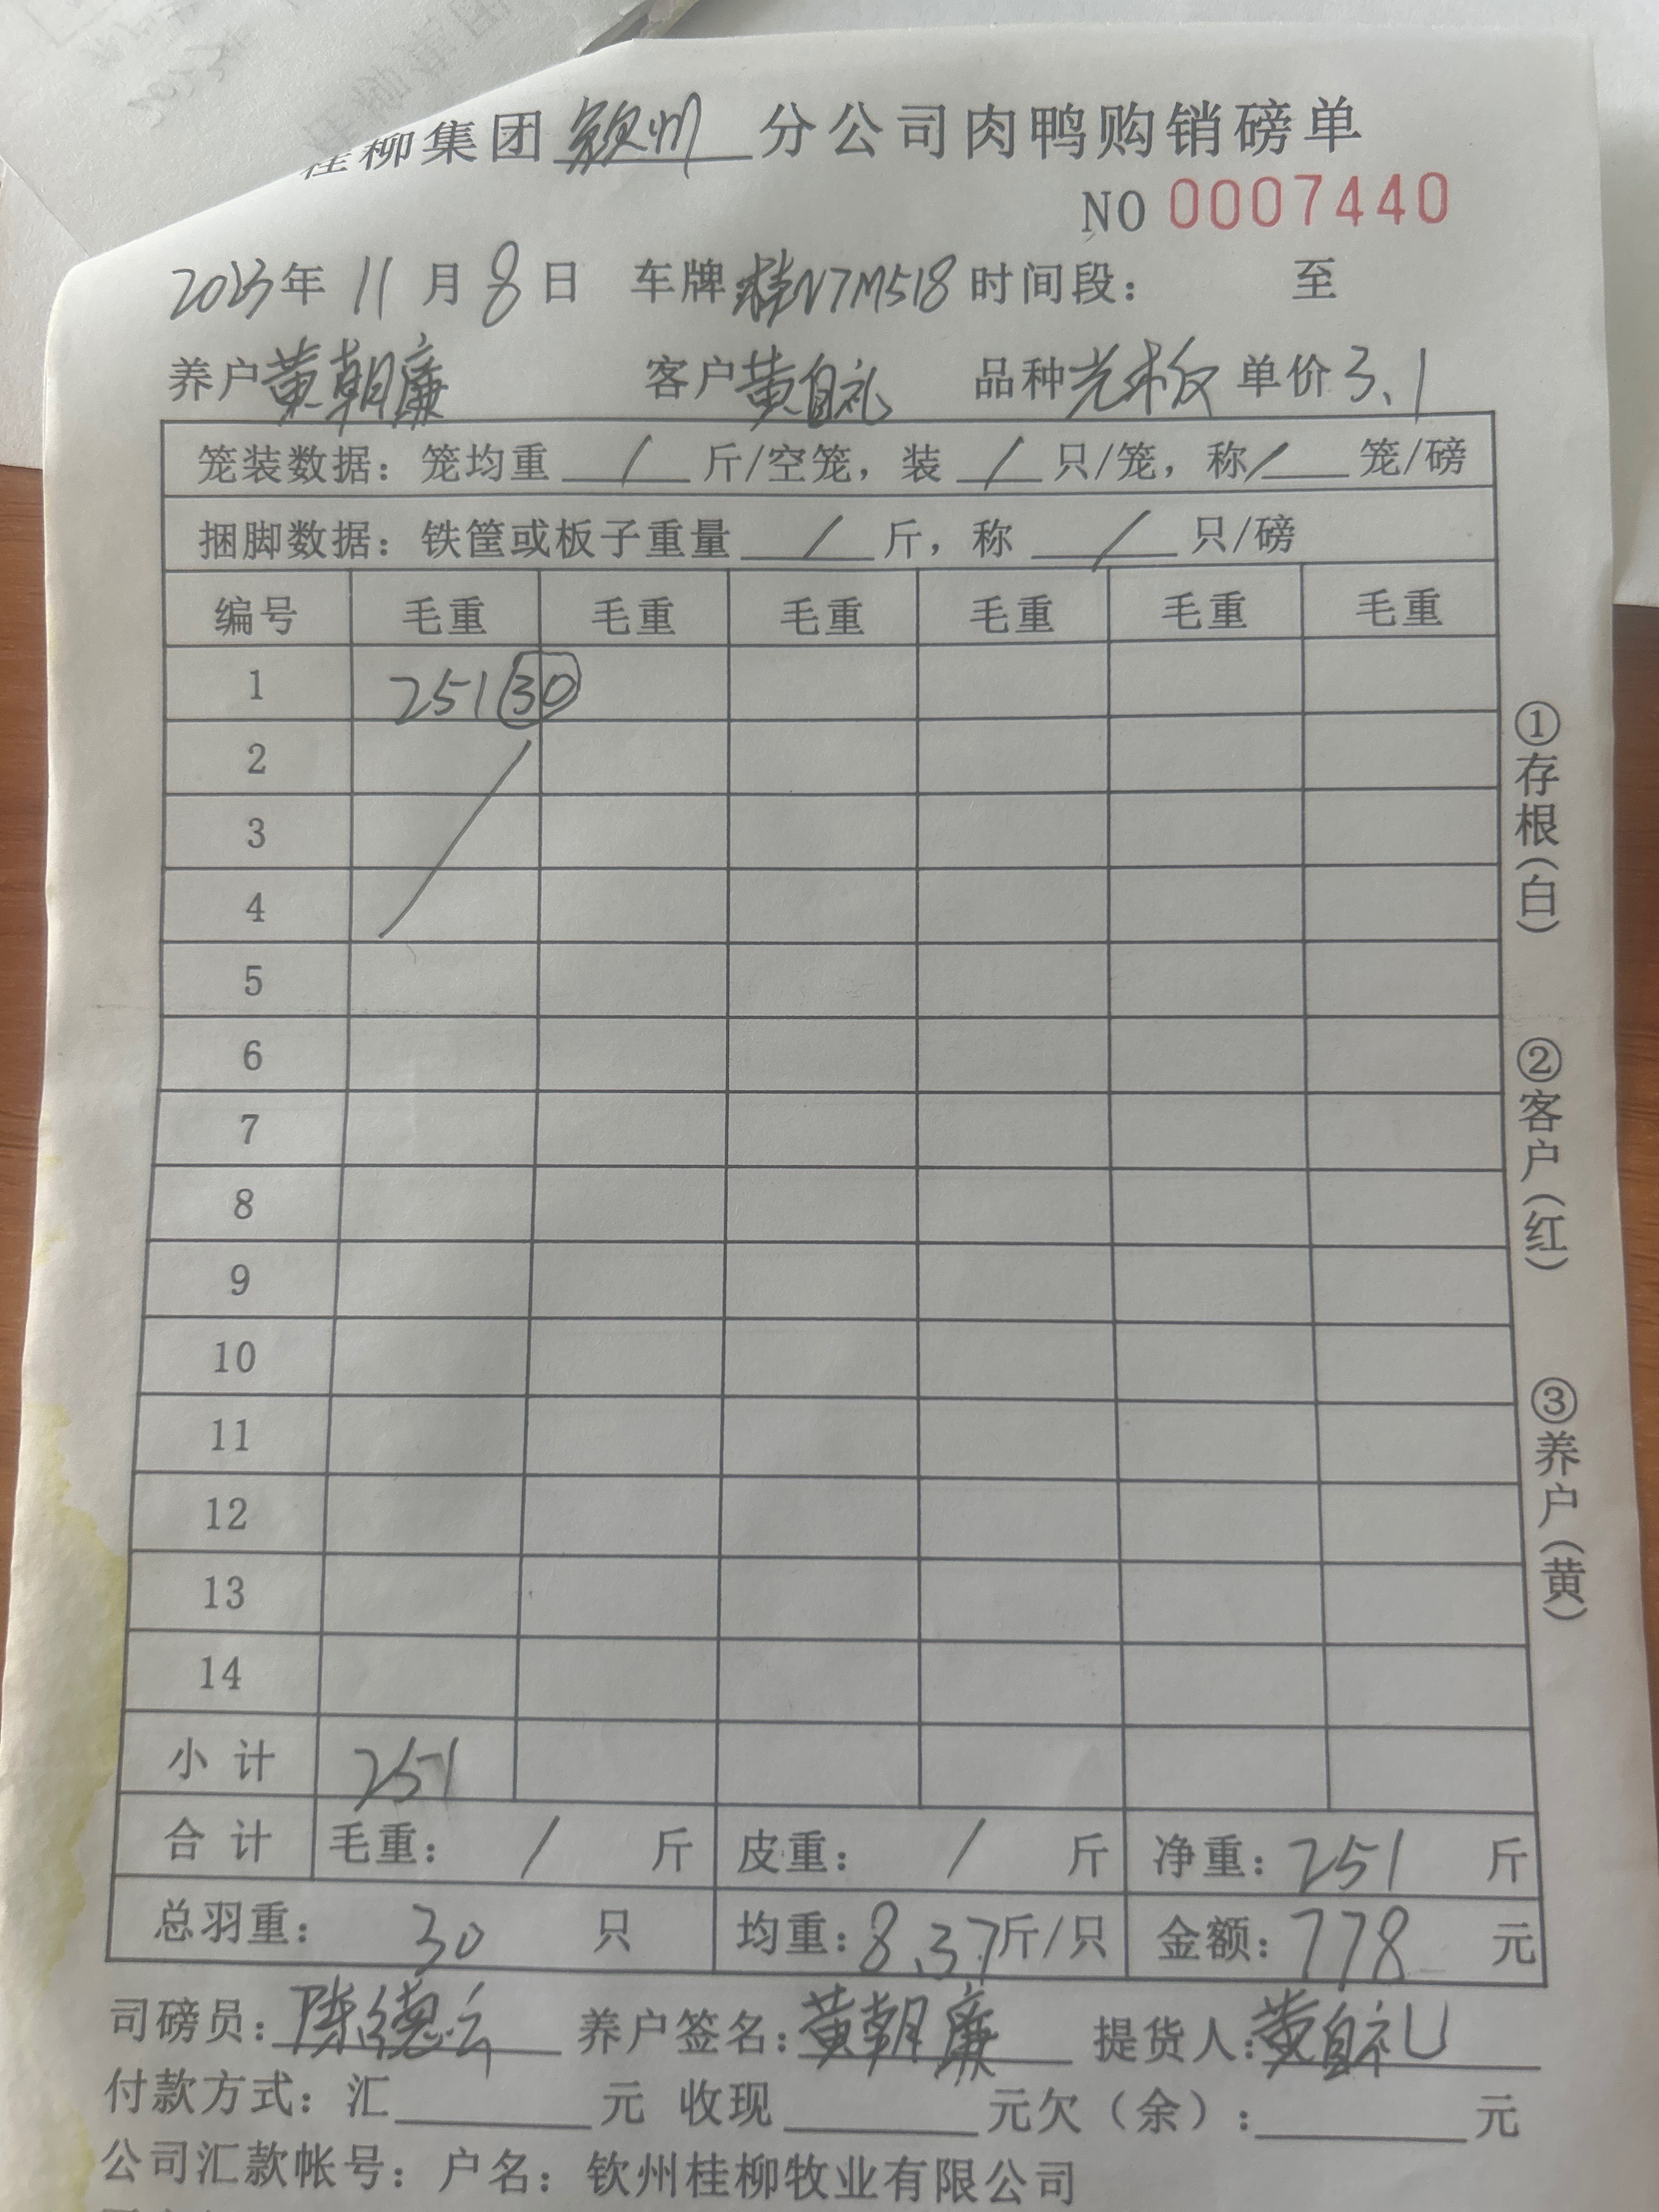 桂柳集团钦州分公司肉鸭购销磅单
NO 0007440
2023年 11月 8日 车牌桂N7M518 时间段： 至
养户黄朝廉 客户黄自礼 品种光板 单价3.1
笼装数据：笼均重 / 斤/空笼，装 / 只/笼，称 / 笼/磅
捆脚数据：铁筐或板子重量 / 斤，称 / 只/磅
编号 毛重 毛重 毛重 毛重 毛重 毛重
1 251 30
2
3
4
5
6
7
8
9
10
11
12
13
14
小计 251
合计 毛重： / 斤 皮重： / 斤 净重：251 斤
总羽重： 30 只 均重：8.37斤/只 金额：778 元
司磅员：陈德云 养户签名：黄朝廉 提货人：黄自礼
付款方式：汇 元 收现 元欠（余）： 元
公司汇款帐号：户名：钦州桂柳牧业有限公司
①存根(白)
②客户(红)
③养户(黄)